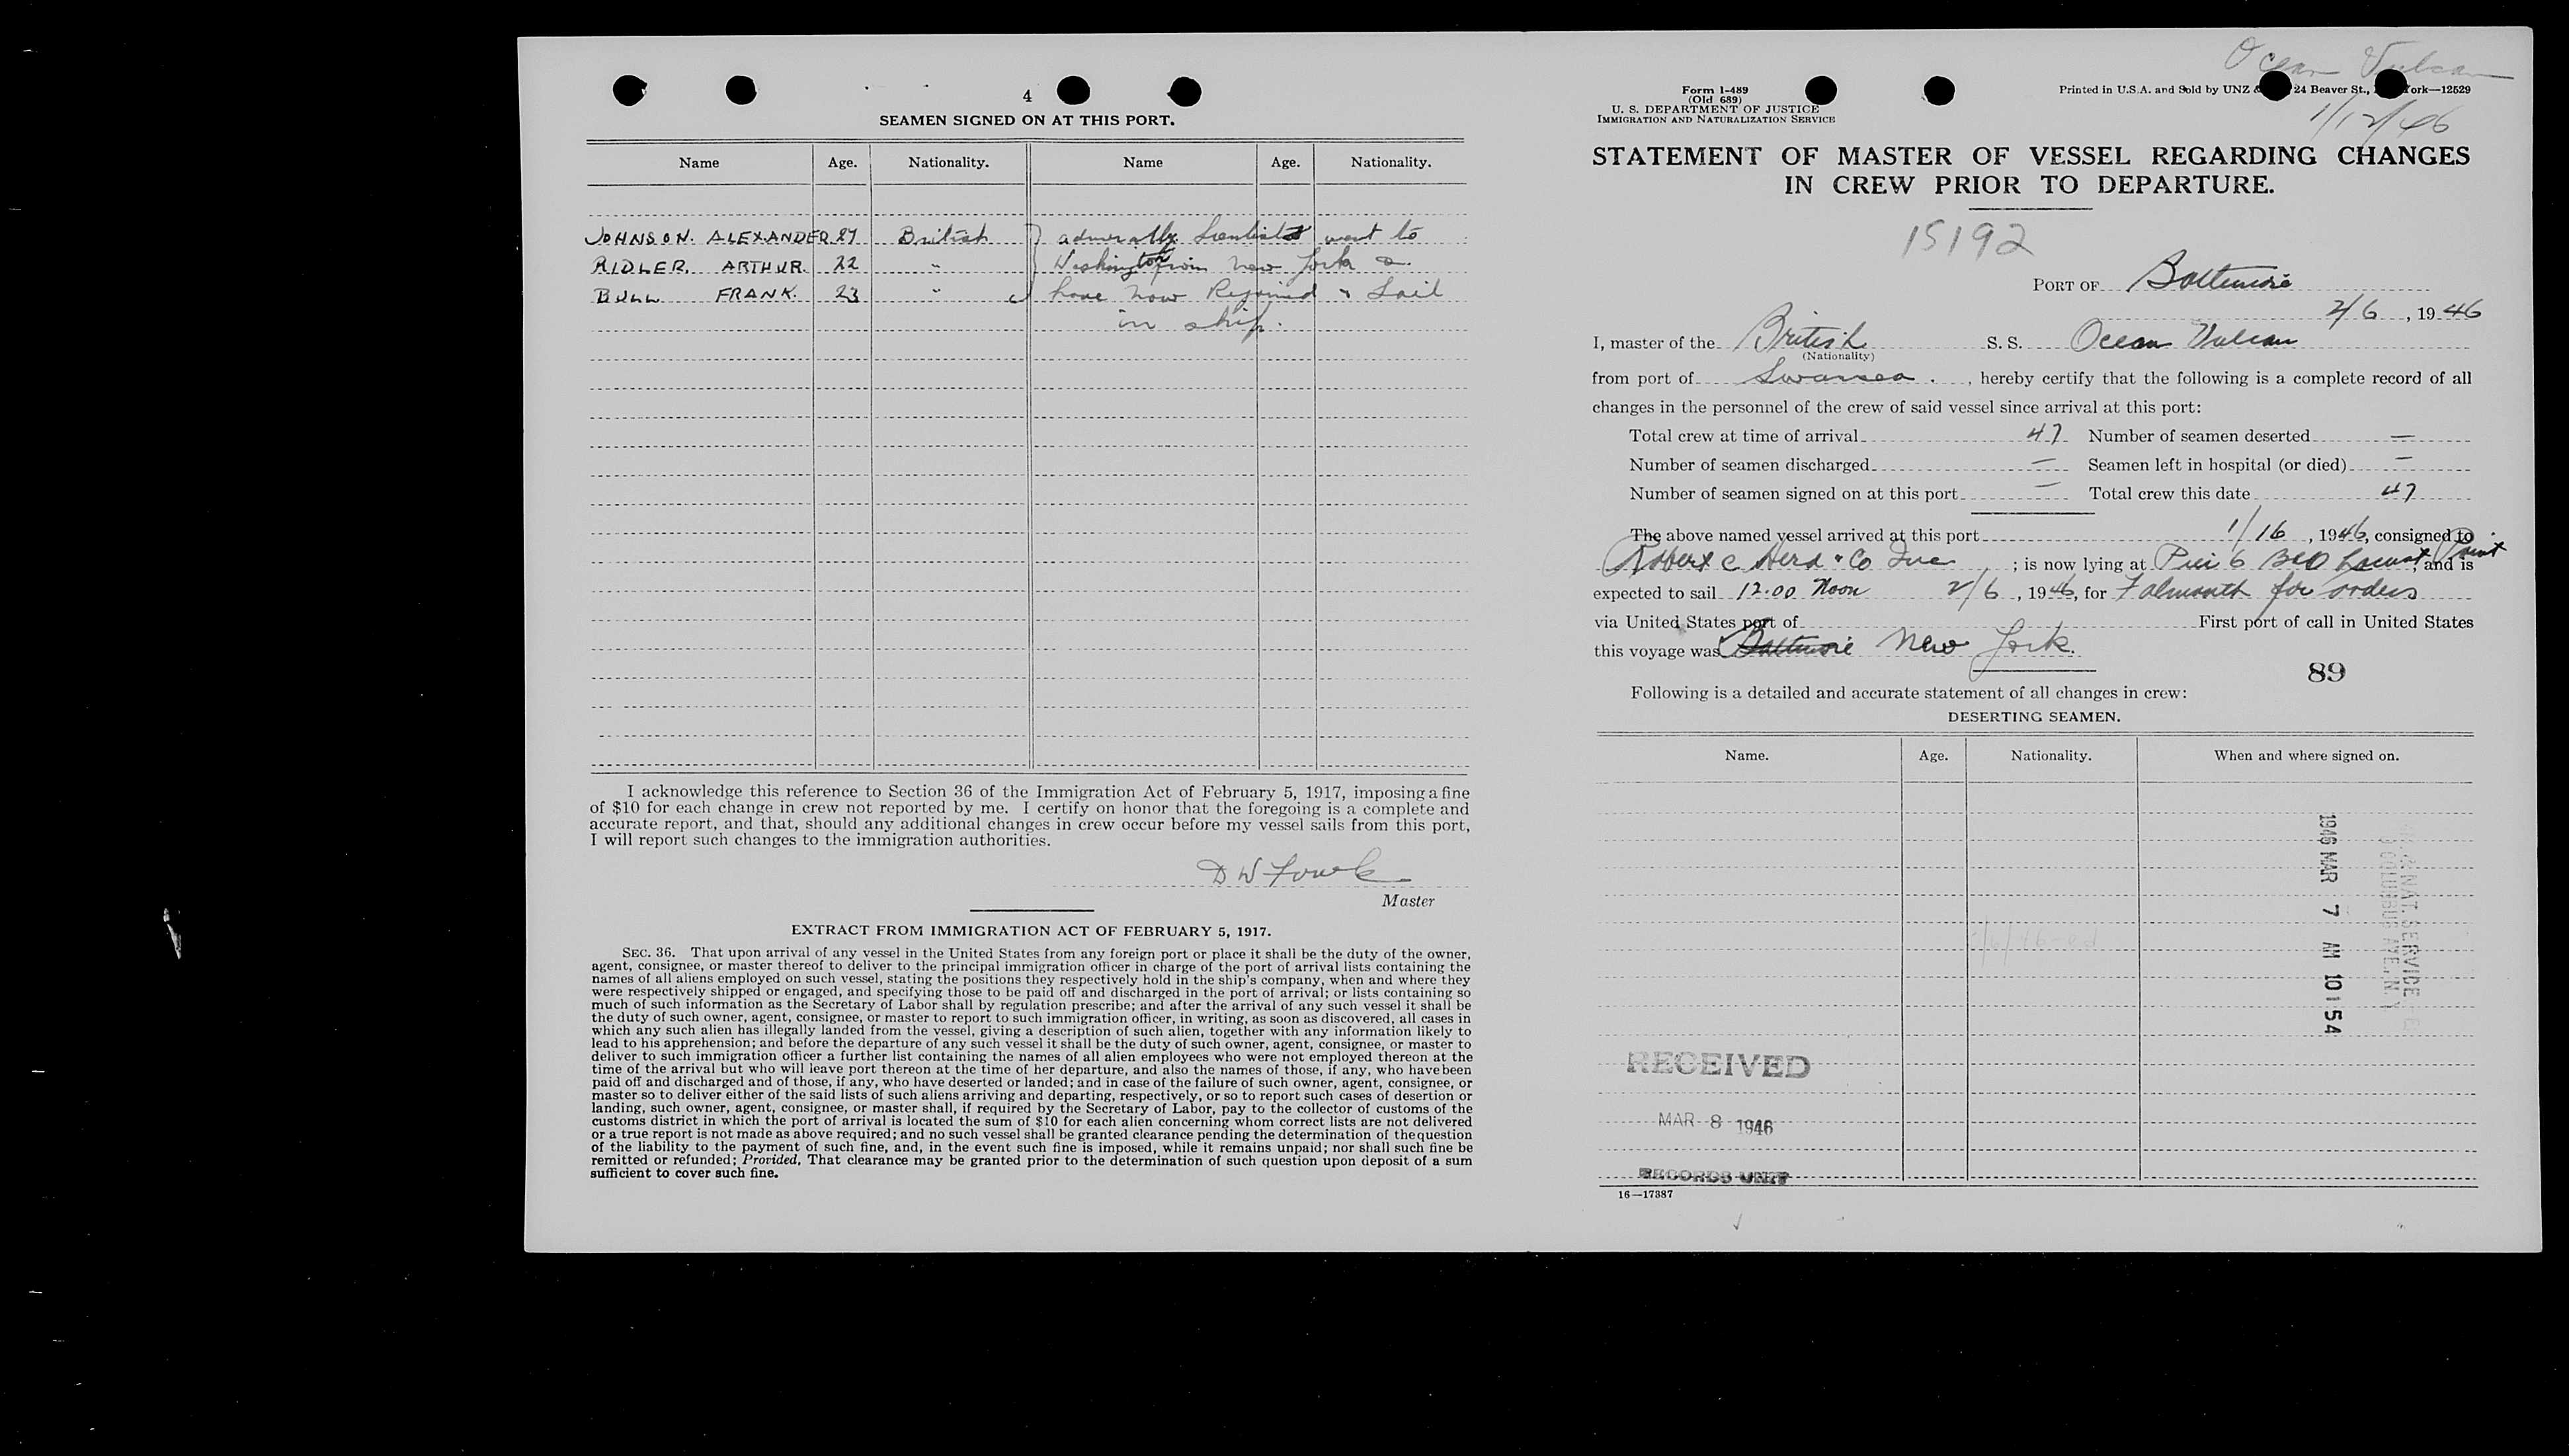 4
SEAMEN SIGNED ON AT THIS PORT.
Name Age. Nationality. Name Age. Nationality.
JOHNSON. ALEXANDER 27 British } admiralty Scientists went to
RIDLER. ARTHUR. 22 " Washington from New York &
BULL FRANK. 23 " have now Rejoined & Sail
in ship.
I acknowledge this reference to Section 36 of the Immigration Act of February 5, 1917, imposing a fine
of $10 for each change in crew not reported by me. I certify on honor that the foregoing is a complete and
accurate report, and that, should any additional changes in crew occur before my vessel sails from this port,
I will report such changes to the immigration authorities.
D W Fowle
Master
EXTRACT FROM IMMIGRATION ACT OF FEBRUARY 5, 1917.
SEC. 36. That upon arrival of any vessel in the United States from any foreign port or place it shall be the duty of the owner,
agent, consignee, or master thereof to deliver to the principal immigration officer in charge of the port of arrival lists containing the
names of all aliens employed on such vessel, stating the positions they respectively hold in the ship's company, when and where they
were respectively shipped or engaged, and specifying those to be paid off and discharged in the port of arrival; or lists containing so
much of such information as the Secretary of Labor shall by regulation prescribe; and after the arrival of any such vessel it shall be
the duty of such owner, agent, consignee, or master to report to such immigration officer, in writing, as soon as discovered, all cases in
which any such alien has illegally landed from the vessel, giving a description of such alien, together with any information likely to
lead to his apprehension; and before the departure of any such vessel it shall be the duty of such owner, agent, consignee, or master to
deliver to such immigration officer a further list containing the names of all alien employees who were not employed thereon at the
time of the arrival but who will leave port thereon at the time of her departure, and also the names of those, if any, who have been
paid off and discharged and of those, if any, who have deserted or landed; and in case of the failure of such owner, agent, consignee, or
master so to deliver either of the said lists of such aliens arriving and departing, respectively, or so to report such cases of desertion or
landing, such owner, agent, consignee, or master shall, if required by the Secretary of Labor, pay to the collector of customs of the
customs district in which the port of arrival is located the sum of $10 for each alien concerning whom correct lists are not delivered
or a true report is not made as above required; and no such vessel shall be granted clearance pending the determination of the question
of the liability to the payment of such fine, and, in the event such fine is imposed, while it remains unpaid; nor shall such fine be
remitted or refunded; Provided, That clearance may be granted prior to the determination of such question upon deposit of a sum
sufficient to cover such fine.
Ocean Vulcan
Form I-489
(Old 689)
U. S. DEPARTMENT OF JUSTICE
IMMIGRATION AND NATURALIZATION SERVICE
Printed in U.S.A. and Sold by UNZ & 24 Beaver St., ork—12529
1/12/46
STATEMENT OF MASTER OF VESSEL REGARDING CHANGES
IN CREW PRIOR TO DEPARTURE.
15192
PORT OF Baltimore
2/6, 1946
I, master of the British S. S. Ocean Vulcan
(Nationality)
from port of Swansea . , hereby certify that the following is a complete record of all
changes in the personnel of the crew of said vessel since arrival at this port:
Total crew at time of arrival 47 Number of seamen deserted —
Number of seamen discharged — Seamen left in hospital (or died) —
Number of seamen signed on at this port — Total crew this date 47
The above named vessel arrived at this port 1/16, 1946, consigned to
Robert C Herd & Co Inc ; is now lying at Pier 6 B&O Locust Point, and is
expected to sail 12.00 Noon 2/6, 1946, for Falmouth for orders
via United States port of First port of call in United States
this voyage was Baltimore New York.
89
Following is a detailed and accurate statement of all changes in crew:
DESERTING SEAMEN.
Name. Age. Nationality. When and where signed on.
1946 MAR 7 AM 10 54
NAT. SERVICE
COLUMBUS AVE., N.Y.
RECEIVED
MAR 8 1946
RECORDS UNIT
16—17387